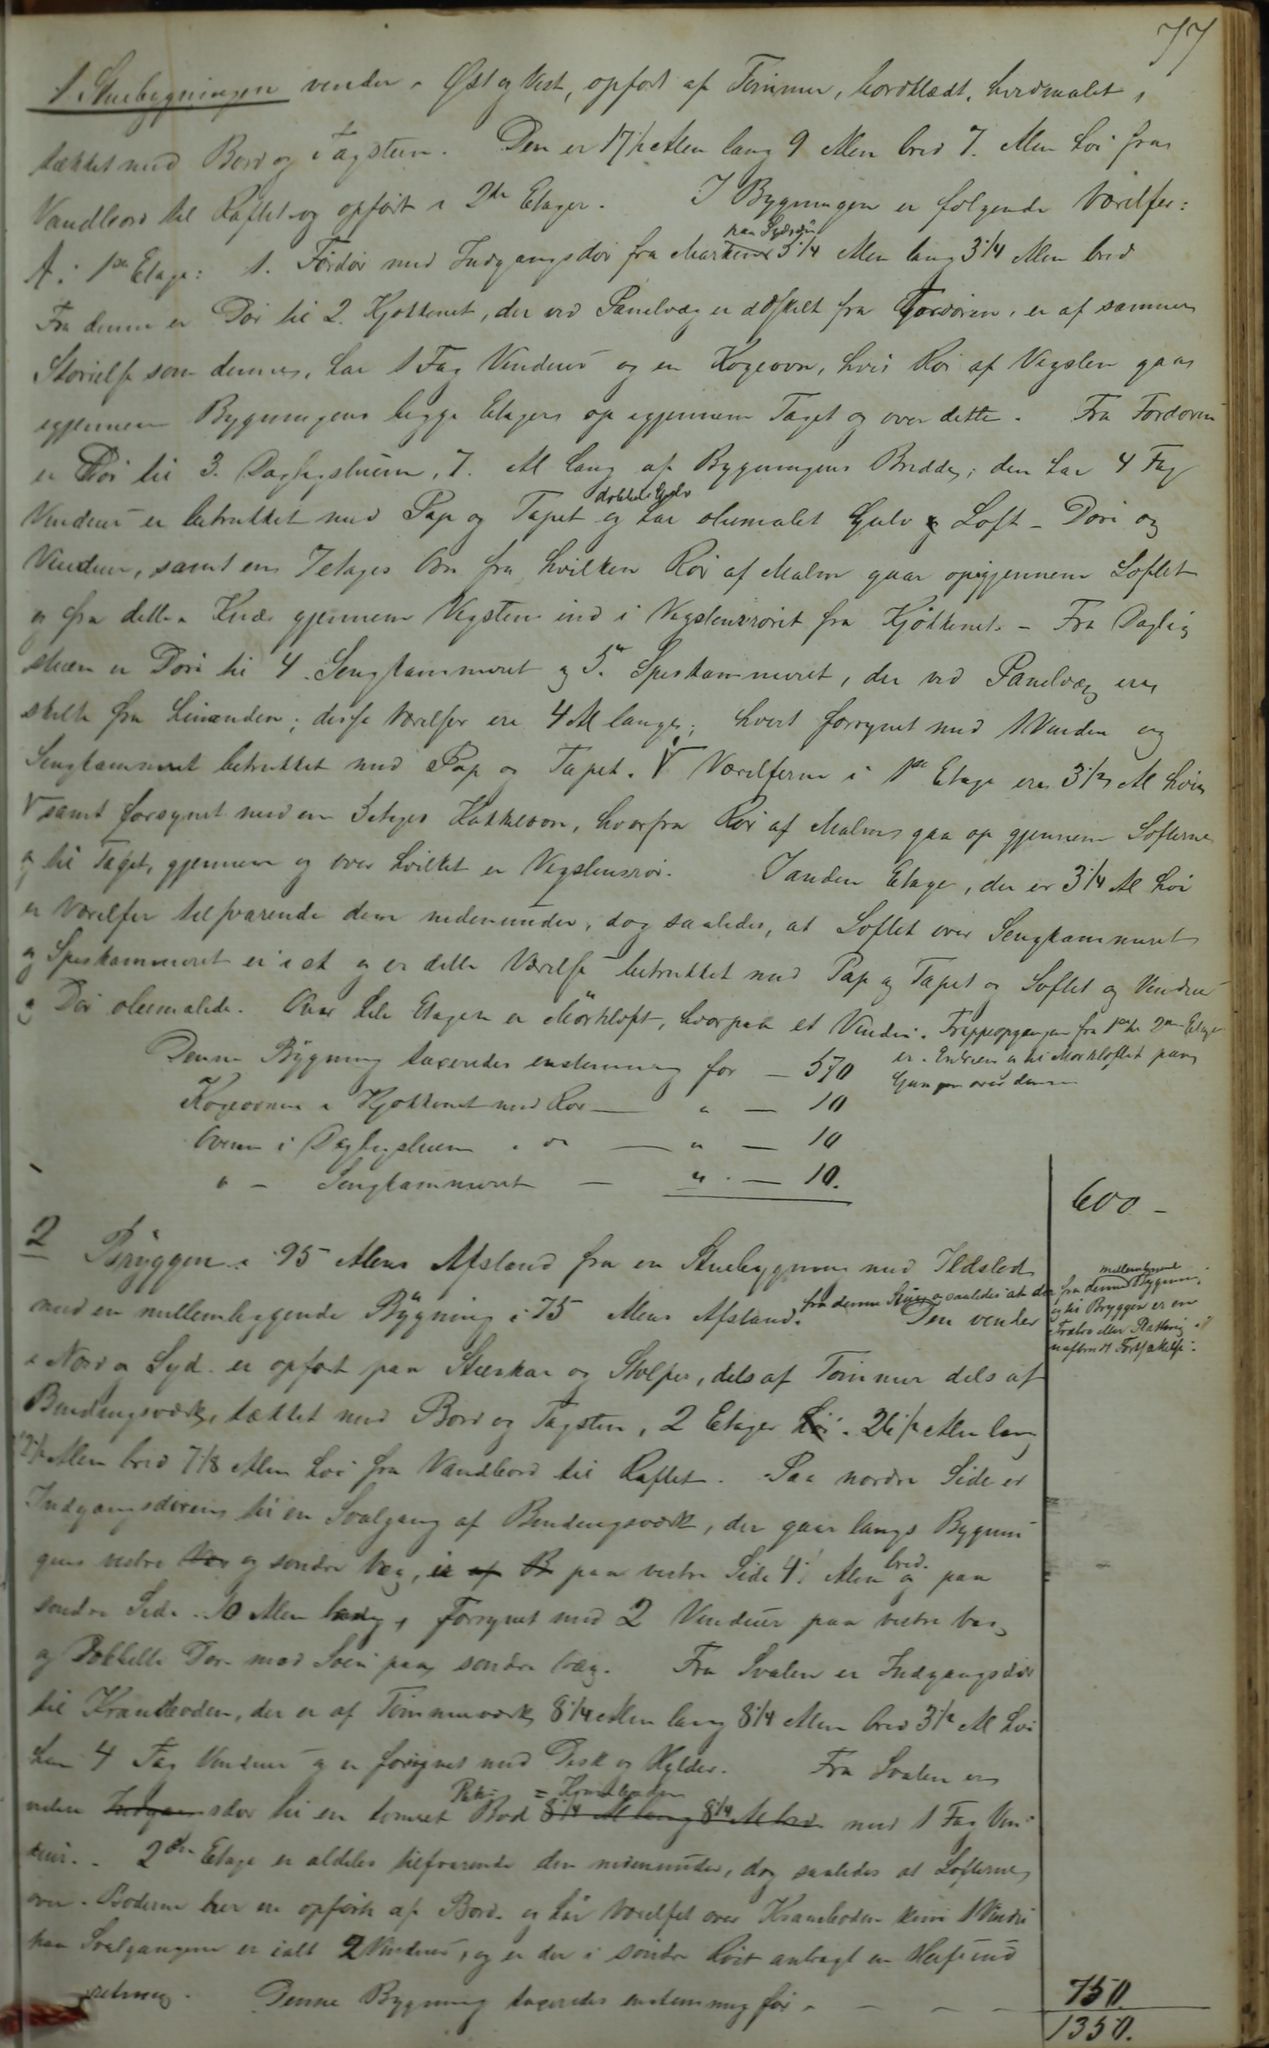 77
1 Stuebygningen vender i Øst og Vest, opført af Tømmer, bordklædt, hvidmalet,
tækket med Bord og Tagsteen. Den er 17 1/2 Alen lang 9 Alen bred 7. Alen høi fra
Vandbord til Raftet og opført i 2de Etager. I Bygningen er følgende Værelser:
A: 1ste Etage: 1. Fordør med Indgangsdør fra Marken paa Sydsiden 3 1/4 Alen lang 3 1/4 Alen bred
Fra denne er Dør til 2. Kjøkkenet, der ved Panelvæg er adskilt fra Fordøren, er af samme
Størrelse som denne, har 1 Fag Vinduer og en Kogeovn, hvis Rør af Vegsten gaar
igjennem Bygningens begge Etager op igjennem Taget og over dette. Fra Fordøren
er Dør til 3. Dagligstuen, 7. Al lang af Bygningens Bredde; den har 4 Fag
Vinduer er betrukket med Pap og Tapet og har dobbelt Gulv oliemalet Gulv og Loft - Døre og
Vinduer, samt en Jetages Ovn fra hvilken Rør af Malm gaar op igjennem Loftet
og fra dette i Knæ gjennem Vegsten ind i Vegstensrøret fra Kjøkkenet. - Fra Daglig
stuen er Døre til 4. Sengkammeret og 5. Spiskammeret, der ved Panelvæg ere
skilte fra hinanden; disse Værelser ere 4 Al lange; hvert forsynet med 1 Vindue og
Sengkammeret betrukket med Pap og Tapet. V Værelserne i 1ste Etage ere 3 1/2 Al høie
V samt forsynet med en 3 etages Kakkelovn, hvorfra Rør af Malm gaa op gjennem Lofterne
og til Taget, gjennem og over hvilket er Vegstensrør. I anden Etage, der er 3 1/4 Al høi
er Værelser tilsvarende dem nedenunder, dog saaledes, at Loftet over Sengkammeret
og Spiskammeret er i et og er dette Værelse betrukket med Pap og Tapet og Loftet og Vinduer
og Dør oliemalede. Over hele Etagen er Mørkloft, hvorpaa et Vindue. Trappeopgangen fra 1ste til 2den Etage
er i Entreen og til Mørkloftet paa
Gangen over denne
Denne Bygning taxeredes enstemmig for - 570
Kogeovnen i Kjøkkenet med Rør - " - 10
Ovnen i Dagligstuen " do - " - 10
" - Sengkammeret - " - 10.
600 -
2 Bryggen i 95 Alens Afstand fra en Stuebygning med Ildsted
med en mellemliggende Bygning i 75 Alens Afstand fra denne og saaledes at der fra denne mellemliggende Bygning
og til Bryggen er en
Træbro eller Platting i
uafbrudt Fortsættelse. Den vender
i Nord og Syd er opført paa Steenkar og Stolper, dels af Tømmer dels af
Bindingsværk, tækket med Bord og Tagsten, 2 Etager høi. 26 1/2 Alen lang
Alen bred 7 1/8 Alen høi fra Vandbord til Raftet. Paa nordre Side er
Indgangsdøren til en Svalgang af Bindingsværk, der gaar langs Bygnin
gens vestre Væg og søndre Væg, er af B paa vestre Side 4. Alen bred og paa
søndre Side 10 Alen lang, forsynet med 2 Vinduer paa vestre Væg
og Dobbelte Døre mod Søen paa søndre Væg. Fra Svalen er Indgangsdør
til Kramboden, der er af Tømmerværk 8 1/4 Alen lang 8 1/4 Alen bred 3 1/2 Al høi
har 4 Fag Vinduer og er forsynet med Disk og Hylder. Fra Svalen er
videre Indgangsdør til en tømret Bod = Kramboden 8 1/4 Al lang 8 1/4 Al bred med 1 Fag Vin
duer. - 2den Etage er aldeles tilsvarende den nedenunder, dog saaledes at Lofterne
over Boderne her ere opførte af Bord og har Værelset over Kramboden kun 1 Vindue
paa Svalgangene er ialt 2 Vinduer, og er der i søndre Røst anbragt en Heiseind
retning. Denne Bygning taxeredes enstemmig for - - - -
750.
1350.